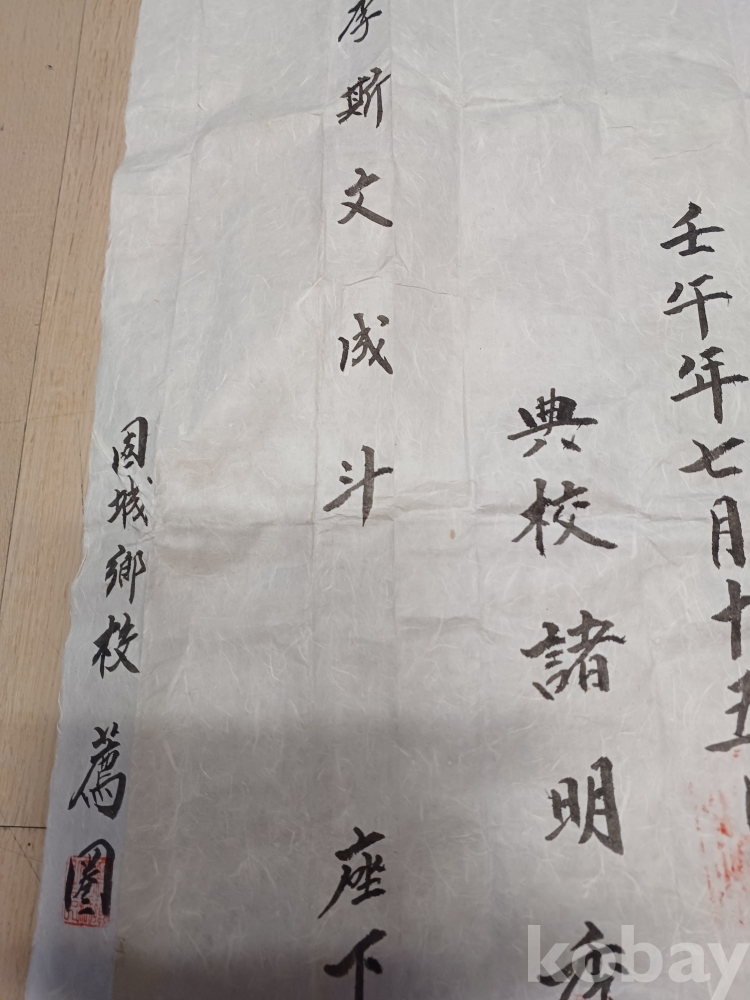 壬午年七月十五
典校諸明
李斯文成斗 座下
固城鄉校 薦圈
kobay